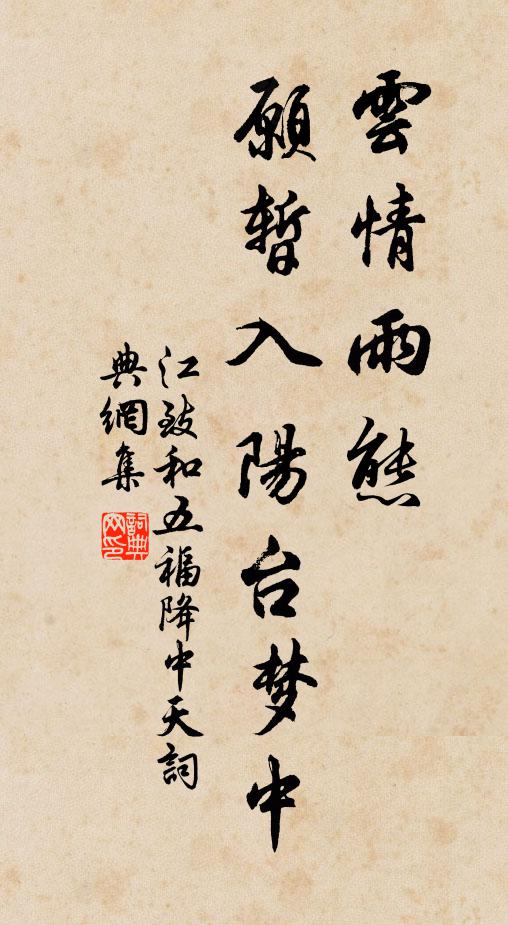 雲情雨態
願暫入陽台梦中
江致和五福降中天詞
典網集
詞典
网印